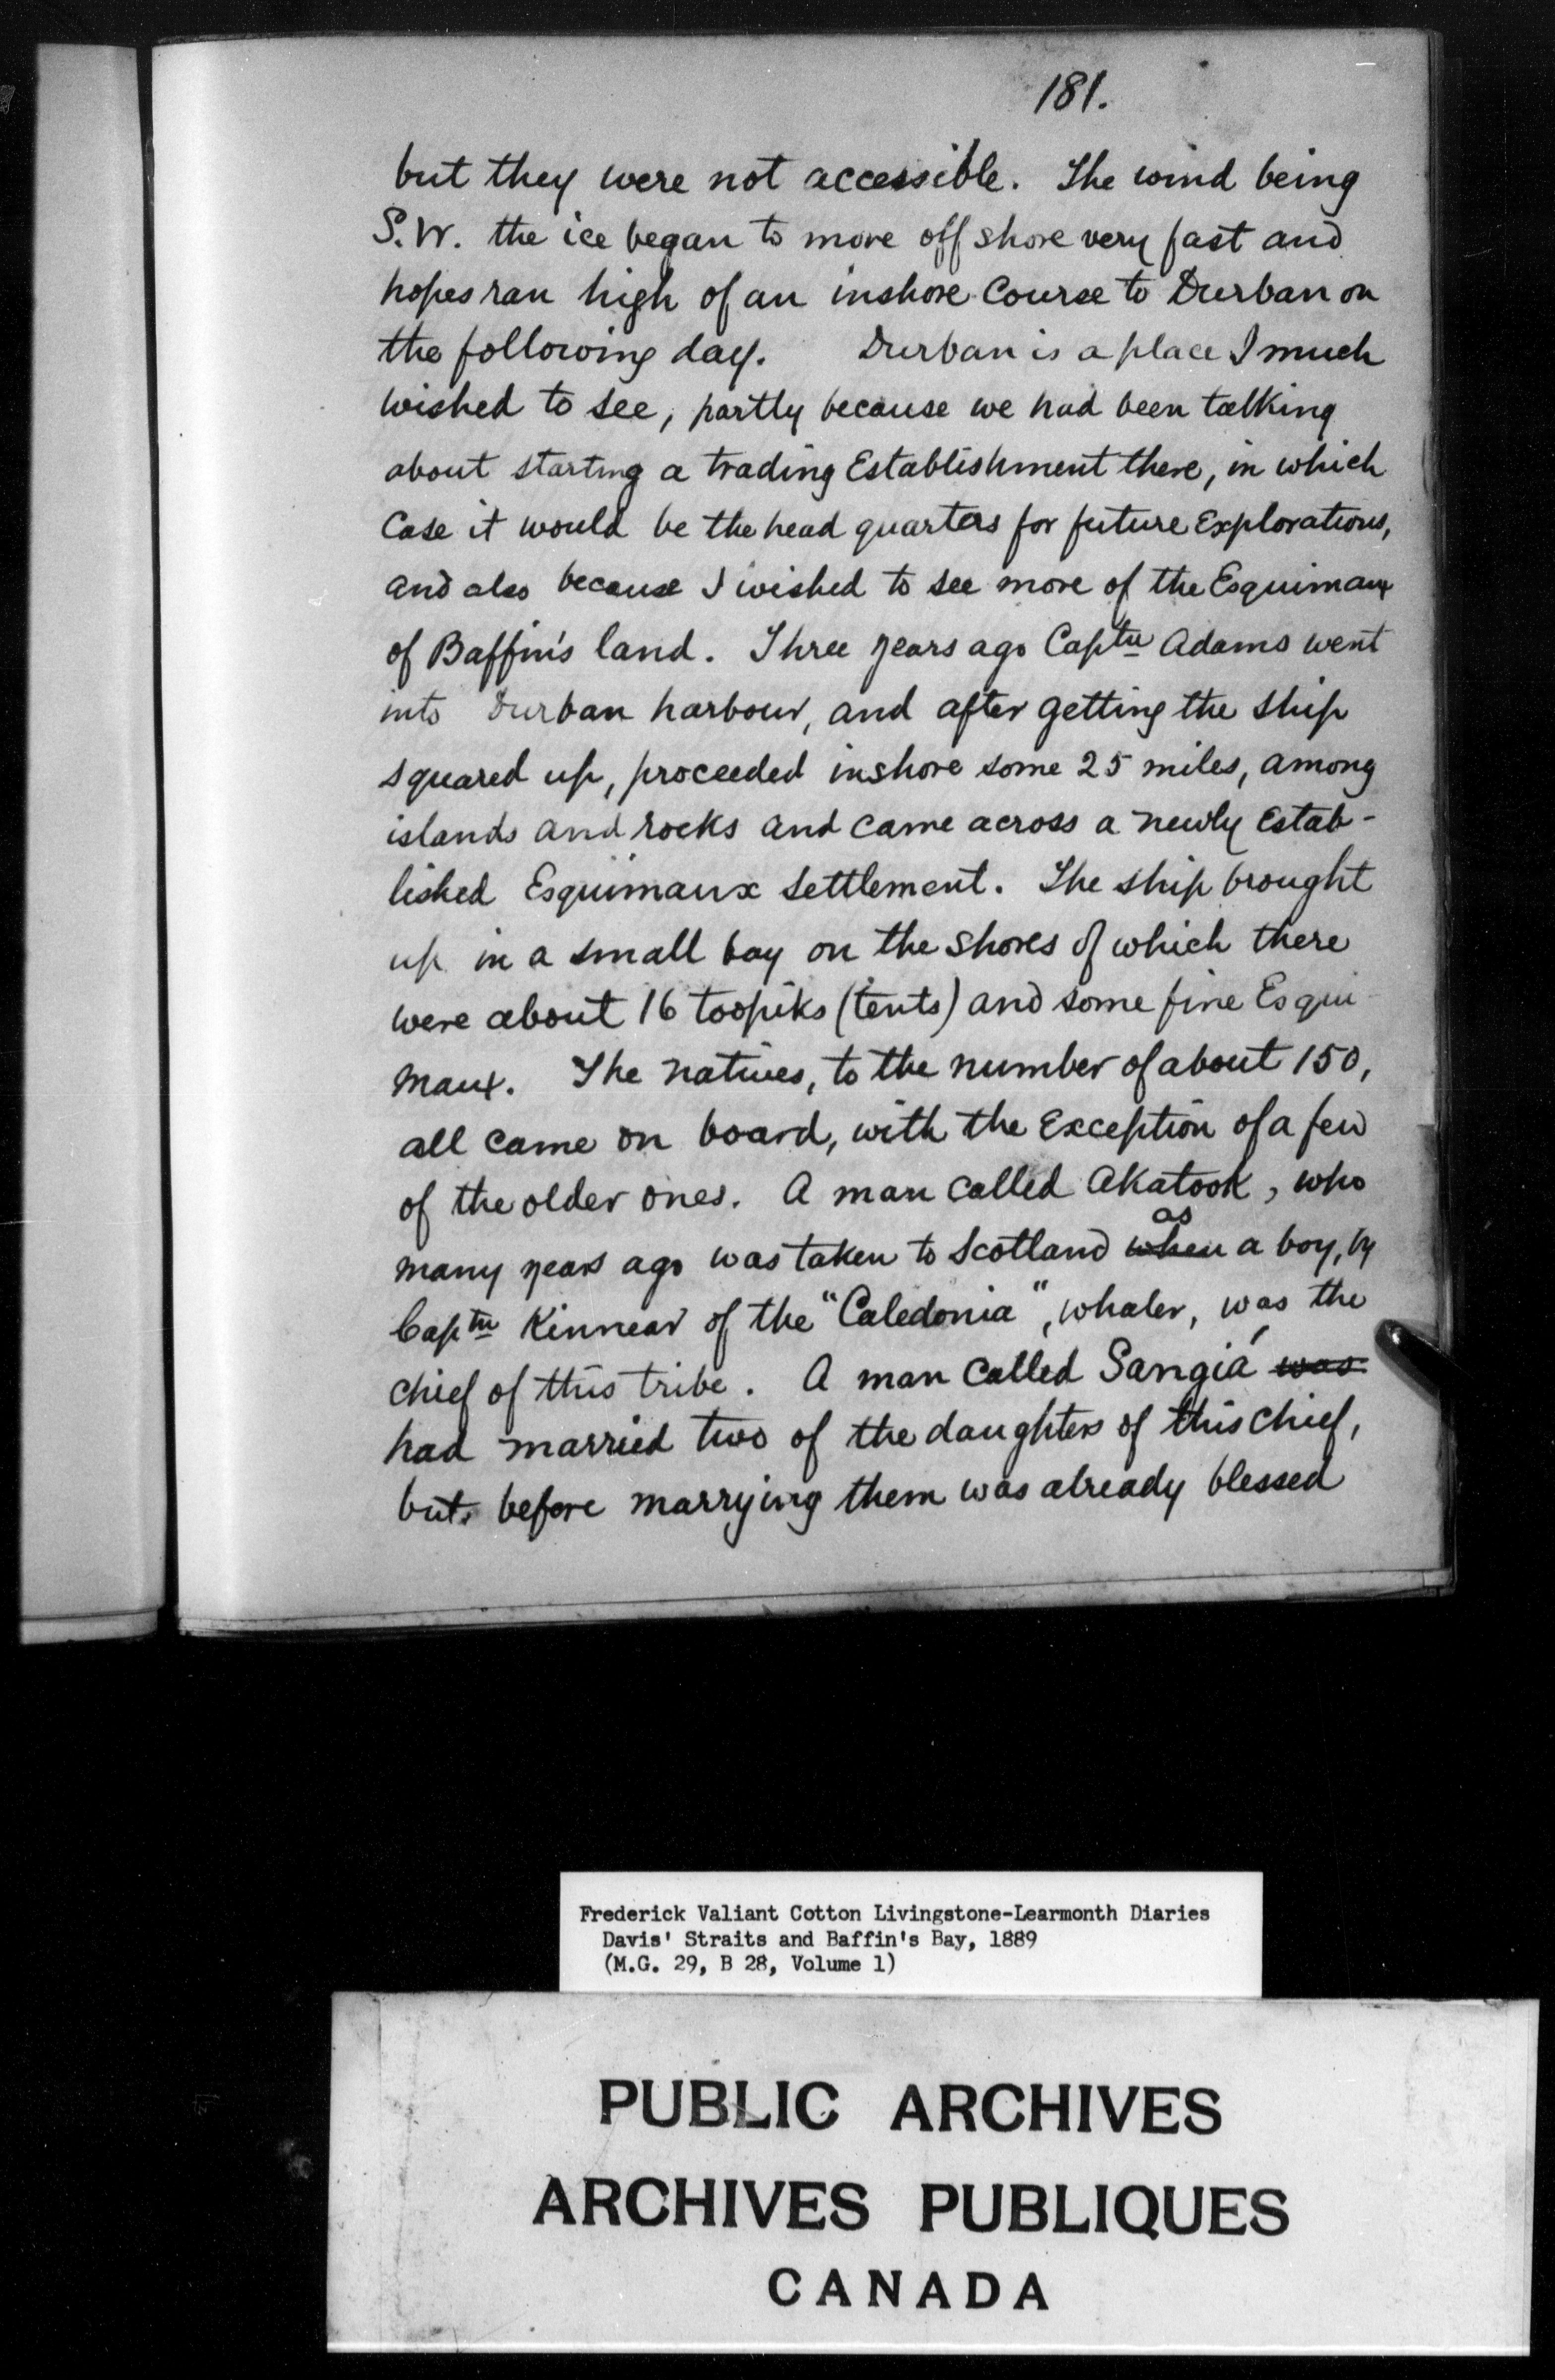 181.
but they were not accessible. The wind being
S.W. the ice began to move off shore very fast and
hopes ran high of an inshore course to Durban on
the following day. Durban is a place I much
wished to see, partly because we had been talking
about starting a trading Establishment there, in which
Case it would be the head quarters for future Explorations,
and also because I wished to see more of the Esquimaux
of Baffin's land. Three years ago Captn Adams went
into Durban harbour, and after getting the ship
squared up, proceeded inshore some 25 miles, among
islands and rocks and came across a newly Estab-
lished Esquimaux settlement. The ship brought
up in a small bay on the shores of which there
were about 16 toopiks (tents) and some fine Esqui-
maux. The natives, to the number of about 150,
all came on board, with the Exception of a few
of the older ones. A man called Akatook, who
as
many years ago was taken to Scotland when a boy, by
Captn Kinnear of the "Caledonia", whaler, was the
chief of this tribe. A man called Sangiá was
had married two of the daughters of this chief,
but before marrying them was already blessed
Frederick Valiant Cotton Livingstone-Learmonth Diaries
Davis' Straits and Baffin's Bay, 1889
(M.G. 29, B 28, Volume 1)
PUBLIC ARCHIVES
ARCHIVES PUBLIQUES
CANADA